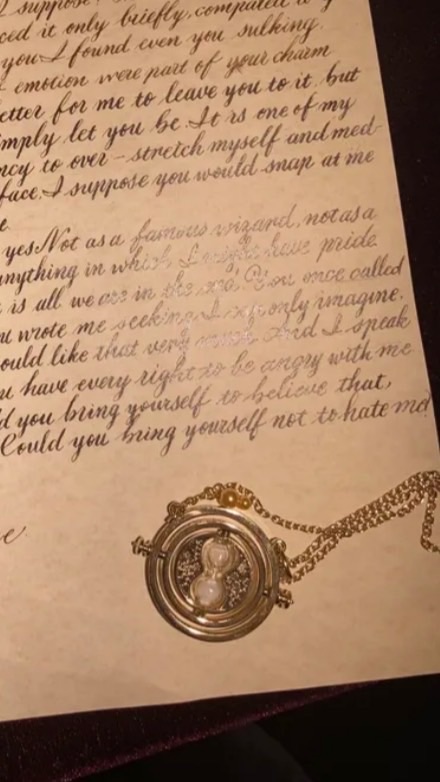 I suppose
ced it only briefly, compared
you. I found even you sulking.
emotion were part of your charm
etter for me to leave you to it, but
imply let you be. It is one of my
ncy to over-stretch myself and med-
face. I suppose you would snap at me
yes. Not as a famous wizard, not as a
anything in which I might have pride.
is all we are in the You once called
u wrote me seeking. I can only imagine.
ould like that very much. And I speak
u have every right to be angry with me
d you bring yourself to believe that,
Could you bring yourself not to hate me?
e